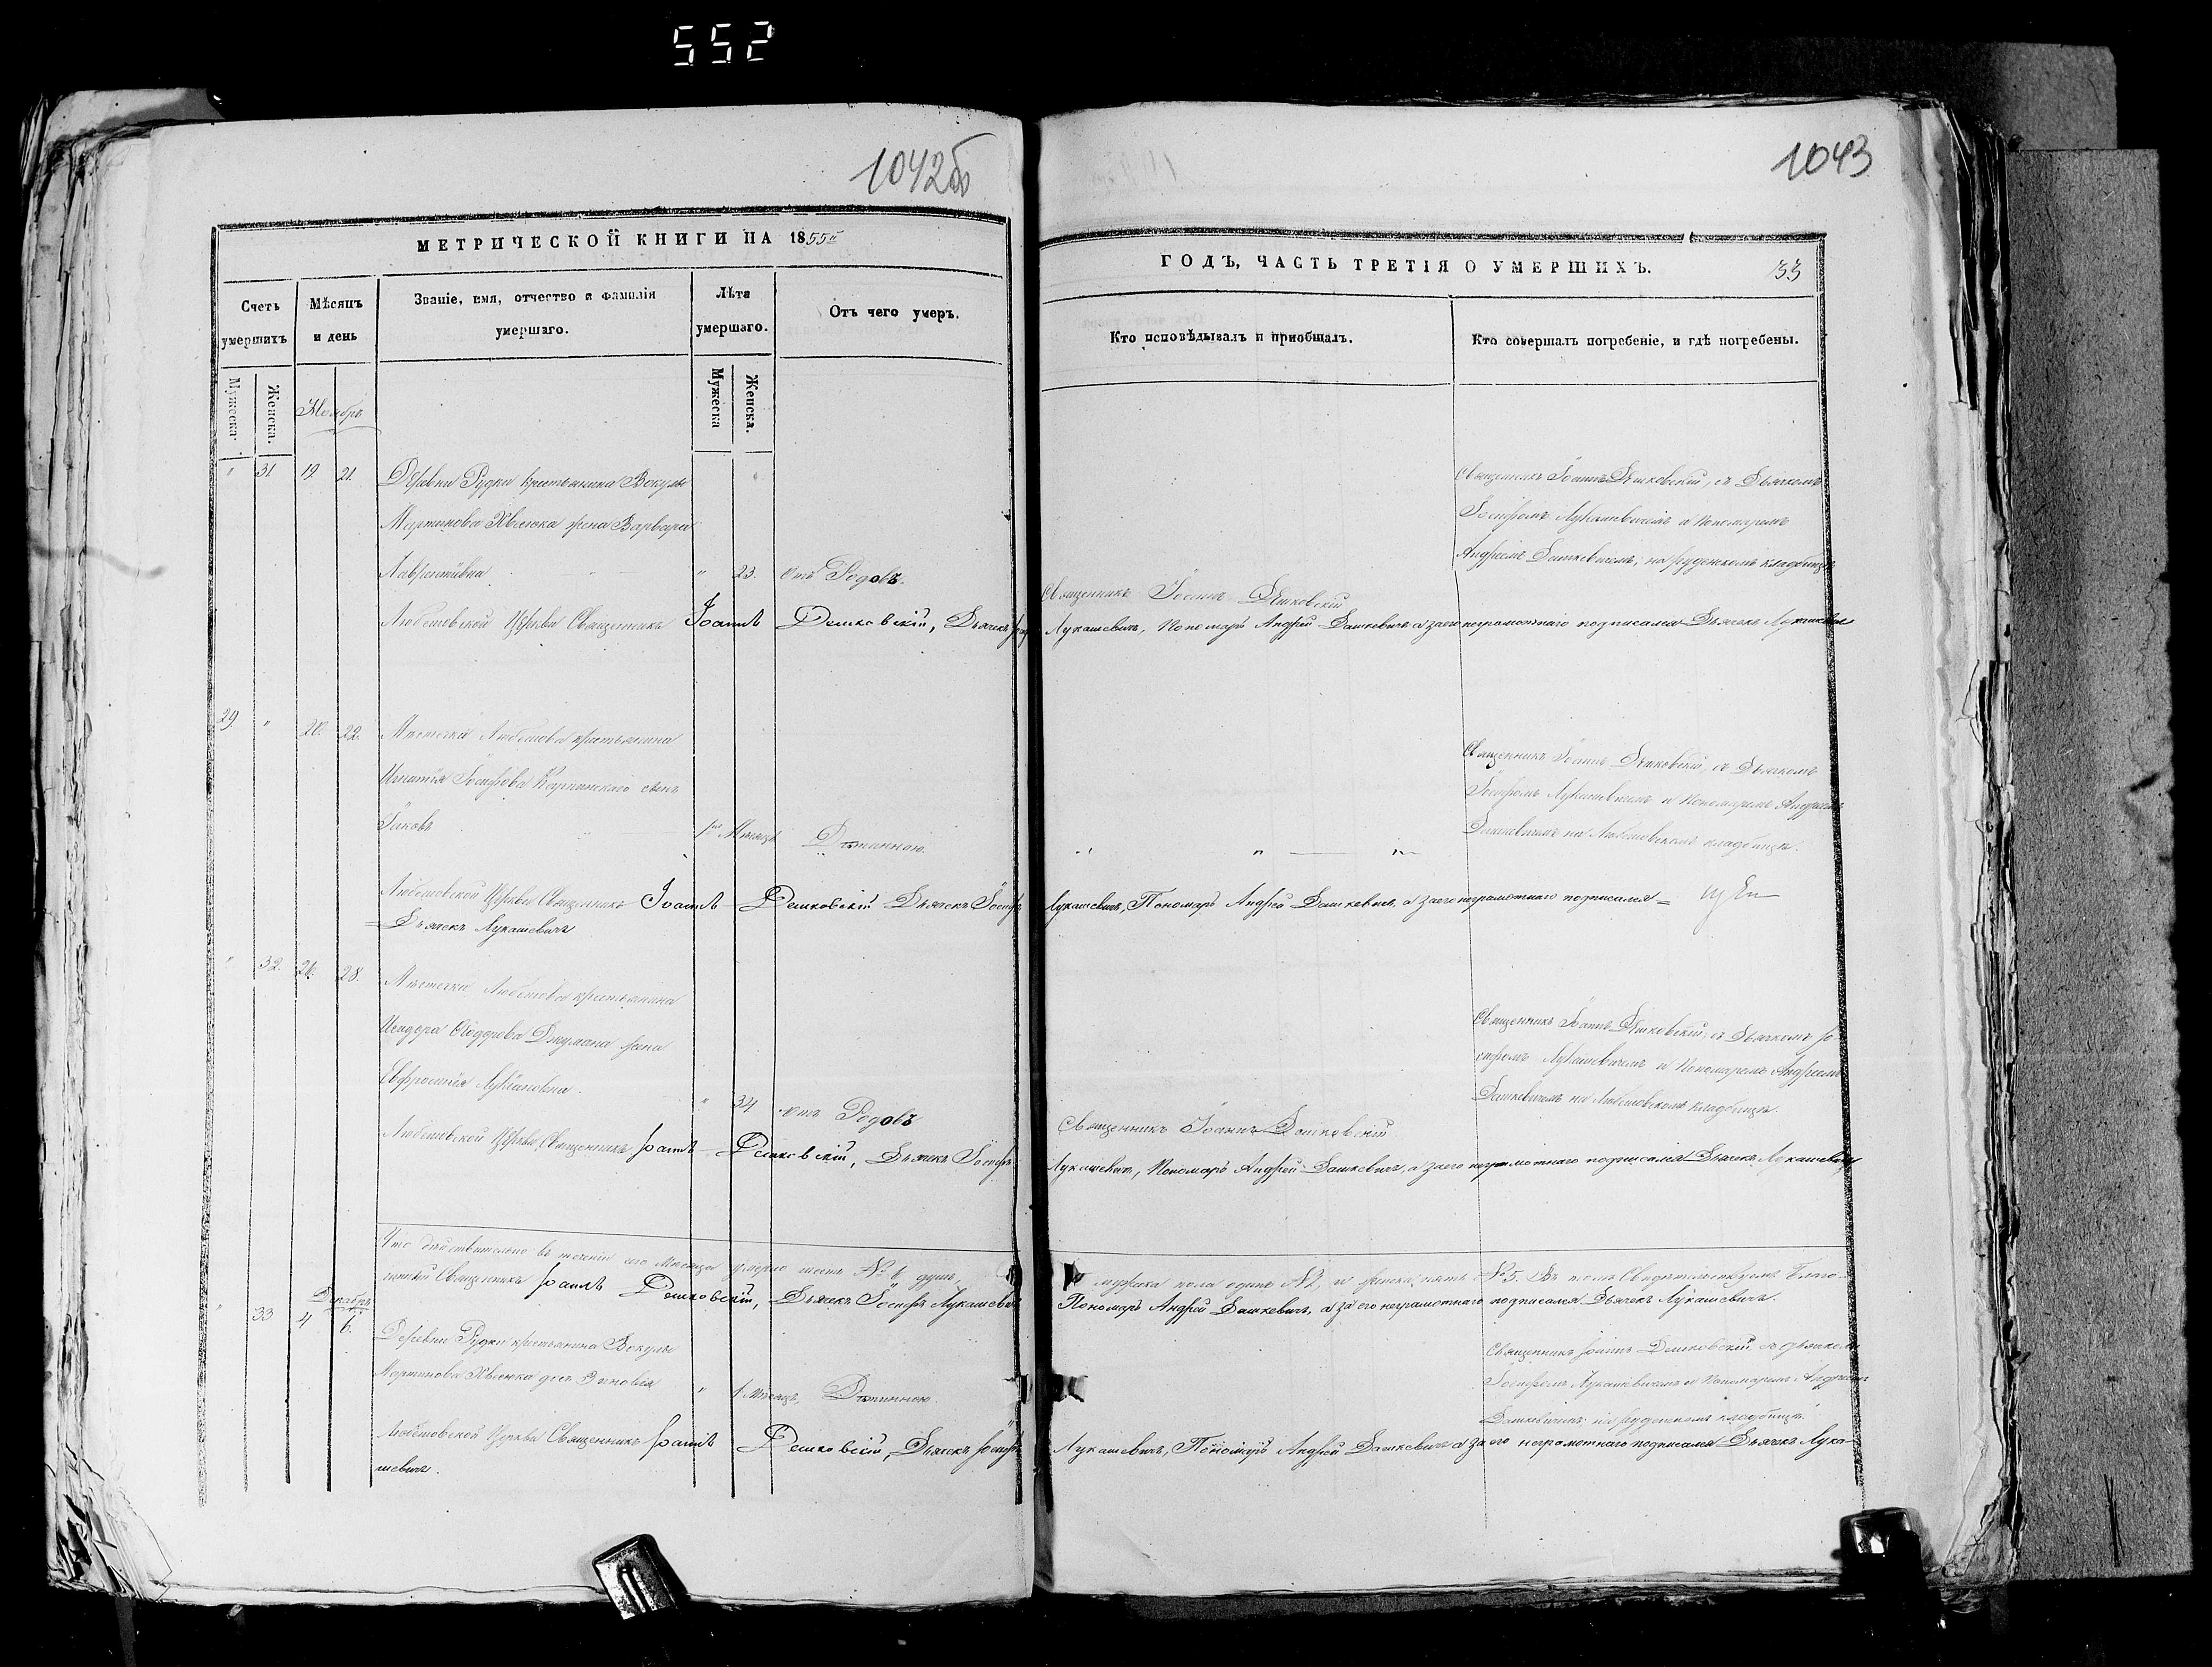 552
1042об
1043
МЕТРИЧЕСКОЙ КНИГИ НА 1855й
ГОДЪ, ЧАСТЬ ТРЕТІЯ О УМЕРШИХЪ.
33
Счетъ умершихъ
Мѣсяцъ и день
Званіе, имя, отчество и фамилія умершаго.
Лѣта умершаго.
Отъ чего умеръ.
Кто исповѣдывалъ и пріобщалъ.
Кто совершалъ погребеніе, и гдѣ погребены.
Мужеска.
Женска.
Ноябрь
Мужеска
Женска.
" 31 19. 21. Деревни Рудки крестьянина Вокулы
Мартинова Хвелюка жена Варвара
Лаврентіивна " 23. Отъ Родовъ.
Священникъ Іоаннъ Дешковскій
Священникъ Іоаннъ Дешковскій, съ Дьячкомъ
Іосифомъ Лукашевичемъ и Пономаремъ
Андреемъ Дашкевичемъ, на руденскомъ кладбищѣ
Любешовской Церкви Священникъ Іоаннъ Дешковскій, Дьячекъ
Лукашевичъ, Пономарь Андрей Дашкевичъ а за его неграмотнаго подписался Дьячекъ Лукашевичъ
29. " 20. 22. Мѣстечка Любешова крестьянина
Игнатія Іосифова Карпинскаго сынъ
Іаковъ 1го Мѣсяца Дѣтинною.
" " "
Священникъ Іоаннъ Дешковскій, съ Дьячкомъ
Іосифомъ Лукашевичемъ и Пономаремъ Андреемъ
Дашкевичемъ на Любешовскомъ кладбищѣ.
Любешовской Церкви Священникъ Іоаннъ Дешковскій Дьячекъ Іосифъ
Лукашевичъ, Пономарь Андрей Дашкевичъ, а за его неграмотнаго подписался =
= Дьячекъ Лукашевичъ
" 32. 26. 28. Мѣстечка Любешова крестьянина
Исидора Джумана жена
Евфросинія " 34 Отъ Родовъ
Священникъ Іоаннъ Дешковскій
Священникъ Іоаннъ Дешковскій, съ Дьячкомъ Іо-
сифомъ Лукашевичемъ и Пономаремъ Андреемъ
Дашкевичемъ на Любешовскомъ кладбищѣ.
Любешовской Церкви Священникъ Іоаннъ Дешковскій, Дьячекъ Іосифъ
Лукашевичъ, Пономарь Андрей Дашкевичъ, а за его неграмотнаго подписался Дьячекъ Лукашевичъ
Что дѣйствительно въ теченіи сего Мѣсяца умерло шесть № 6 душъ,
мужска пола одинъ № 1, и женска пять № 5. Въ томъ Свидѣтельствуемъ Благо-
чинный Священникъ Іоаннъ Дешковскій, Дьячекъ Іосифъ Лукашевичъ
Пономарь Андрей Дашкевичъ, а за его неграмотнаго подписался Дьячекъ Лукашевичъ.
Декабрь
" 33 4 6. Деревни Рудки крестьянина Вокулы
Мартинова Хвелюка дочь Зиновія " 1 Мѣсяцъ Дѣтинною.
Священникъ Іоаннъ Дешковскій, съ дьячкомъ
Іосифомъ Лукашевичемъ и Пономаремъ Андреемъ
Дашкевичемъ на руденскомъ кладбищѣ.
Любешовской Церкви Священникъ Іоаннъ Дешковскій, Дьячекъ Іосифъ
Лукашевичъ, Пономарь Андрей Дашкевичъ а за его неграмотнаго подписался Дьячекъ Лука-
шевичъ.